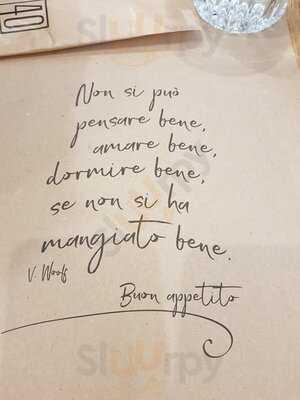 40
Non si può
pensare bene,
amare bene,
dormire bene,
se non si ha
mangiato bene.
V. Woolf
Buon appetito
Sluurpy